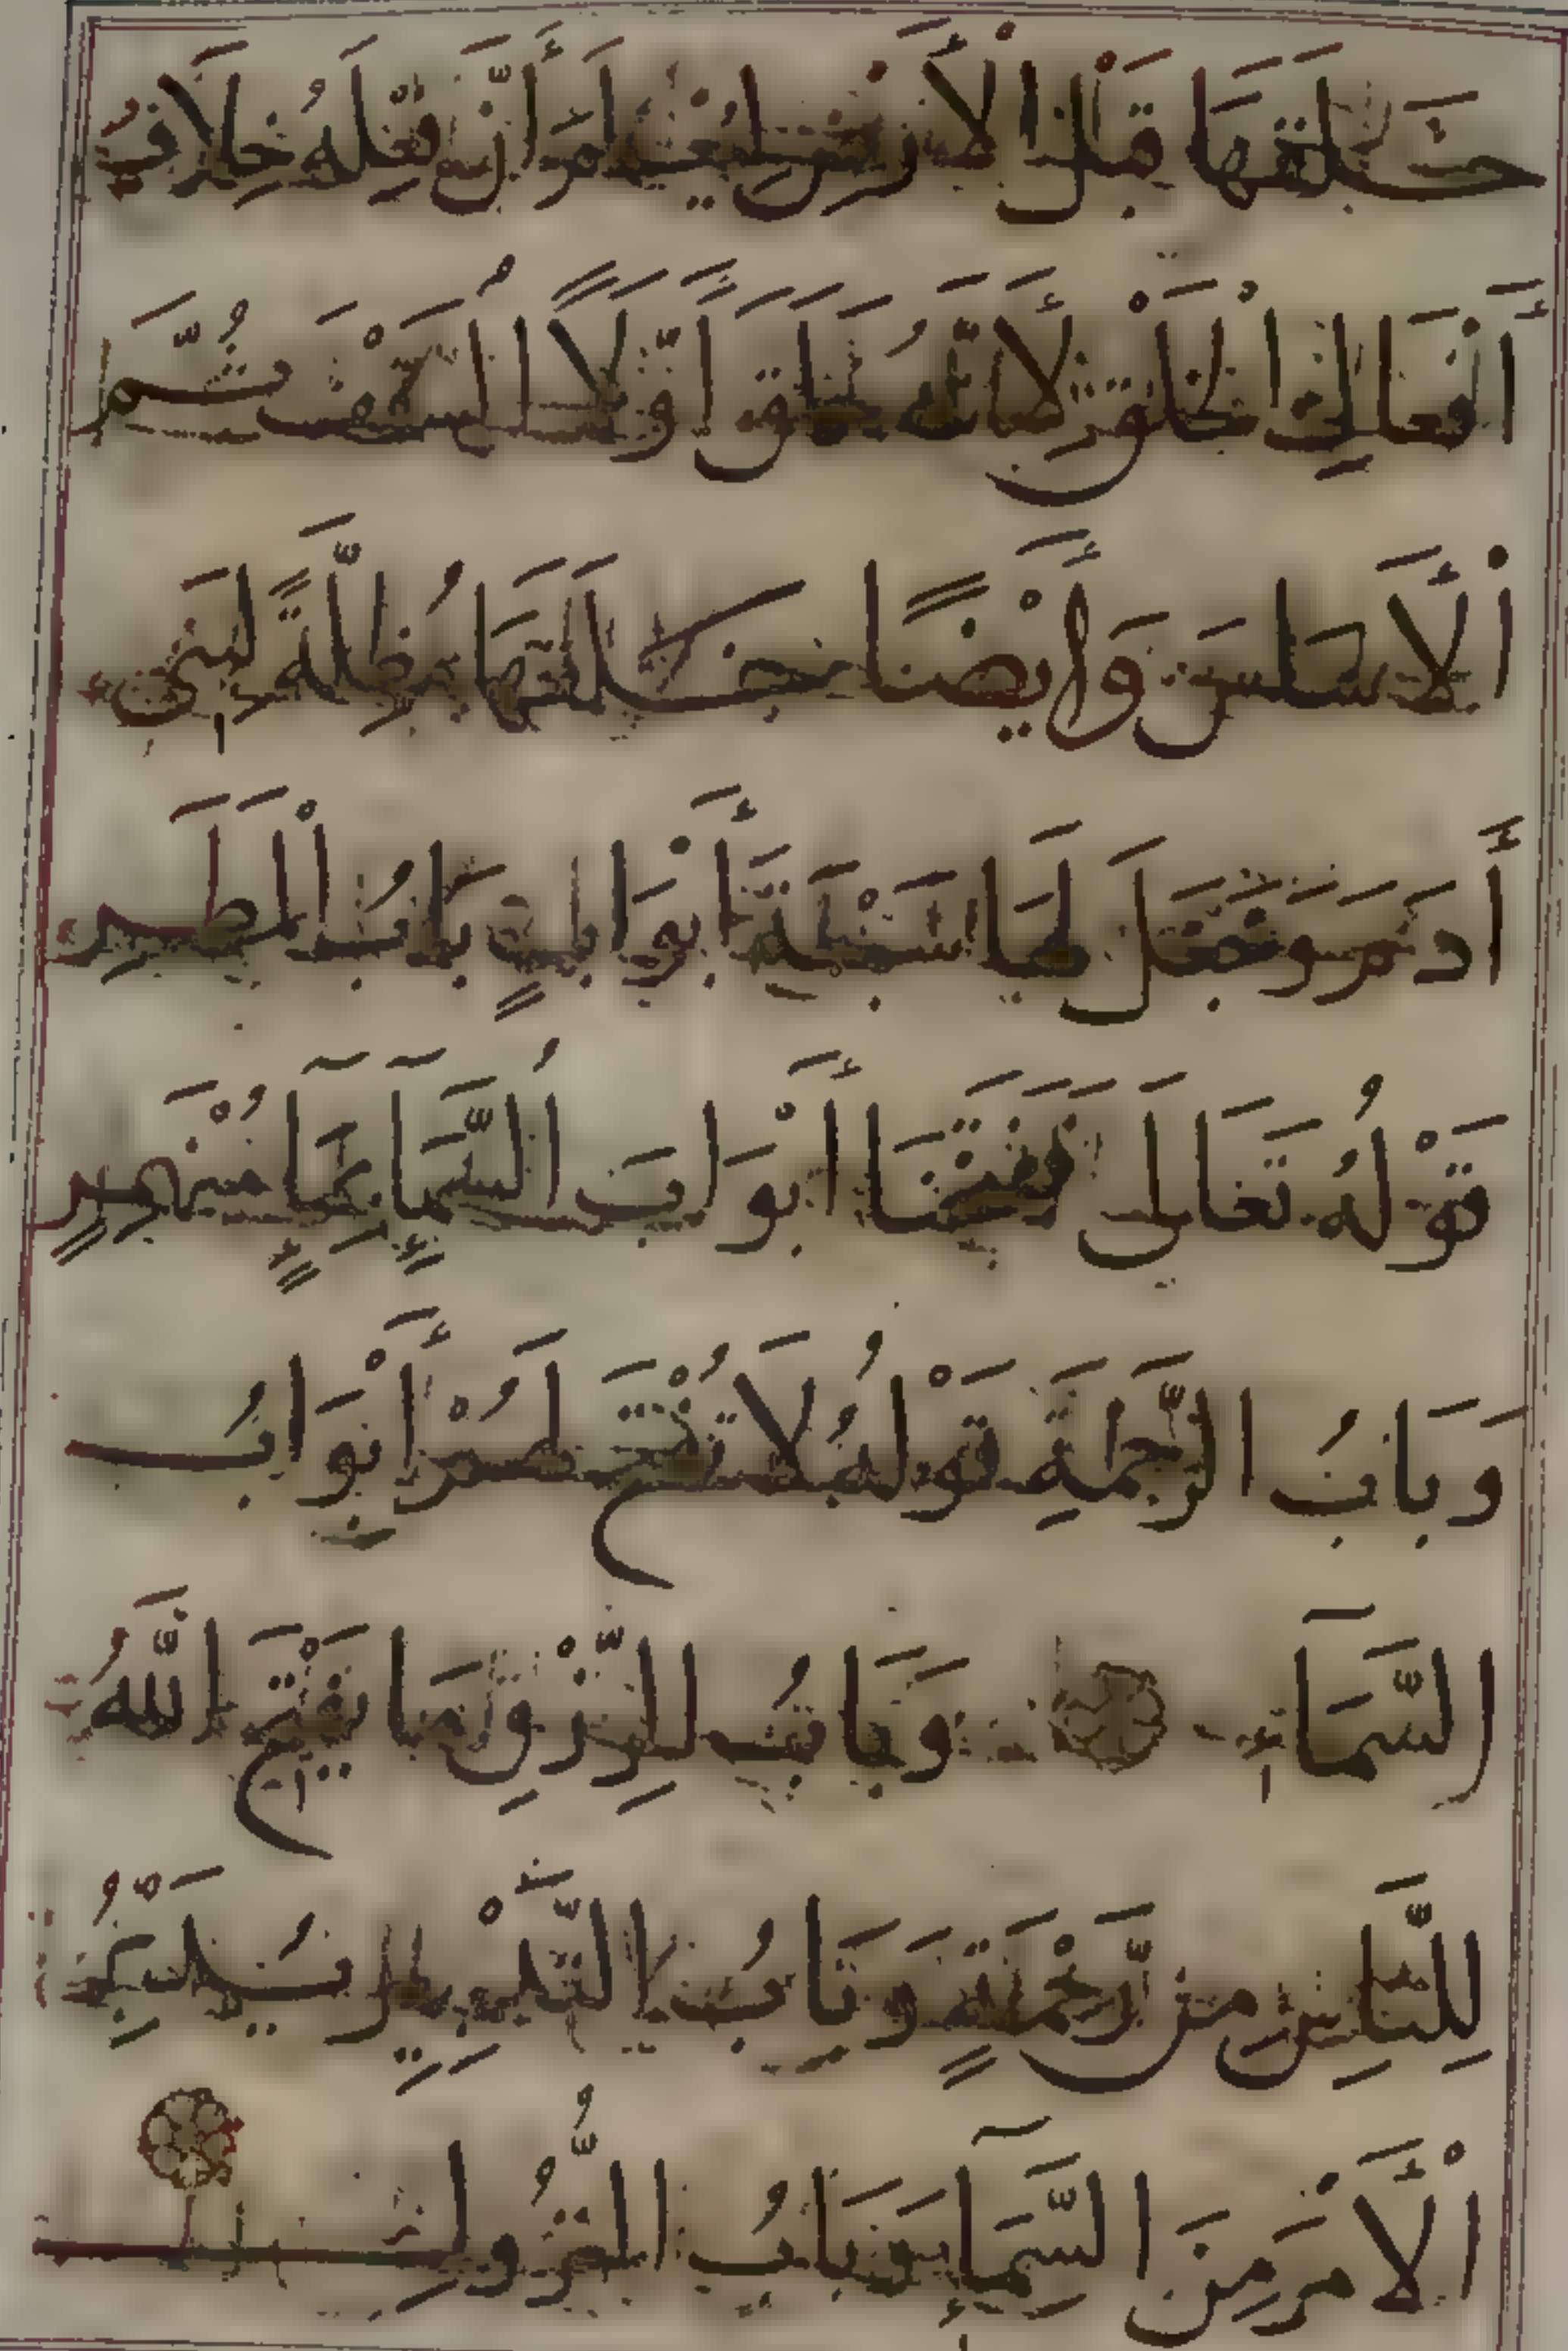 خَلَقَهَا قَبْلَ الْأَرْضِ لِيُعْلَمَ أَنَّ فِعْلَهُ خِلَافُ
أَفْعَالِ الْخَلْقِ لِأَنَّهُ خَلَقَ أَوَّلًا السَّقْفَ ثُمَّ
الْأَسَاسَ وَأَيْضًا خَلَقَهَا مُظِلَّةً لِبَنِي
أَدَمَ وَجَعَلَ لَهَا سَبْعَةَ أَبْوَابٍ بَابُ الْمَطَرِ
قَوْلُهُ تَعَالَى فَفَتَحْنَا أَبْوَابَ السَّمَآءِ بِمَآءٍ مُنْهَمِرٍ
وَبَابُ الرَّحْمَةِ قَوْلُهُ لَا تُفَتَّحُ لَهُمْ أَبْوَابُ
السَّمَآءِ وَبَابُ الرِّزْقِ مَا يَفْتَحِ اللَّهُ
لِلنَّاسِ مِن رَّحْمَةٍ وَبَابُ التَّدْبِيرِ يُدَبِّرُ
الْأَمْرَ مِنَ السَّمَآءِ وَبَابُ النُّزُولِ